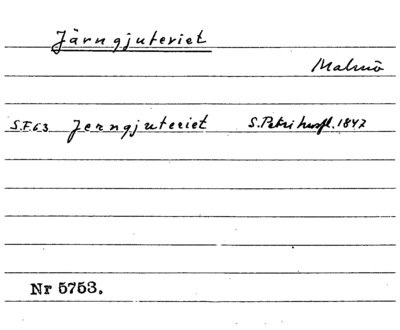 Järngjuteriet
Malmö
S.F.63 Jerngjuteriet S. Petri husfl. 1847
Nr 5753.